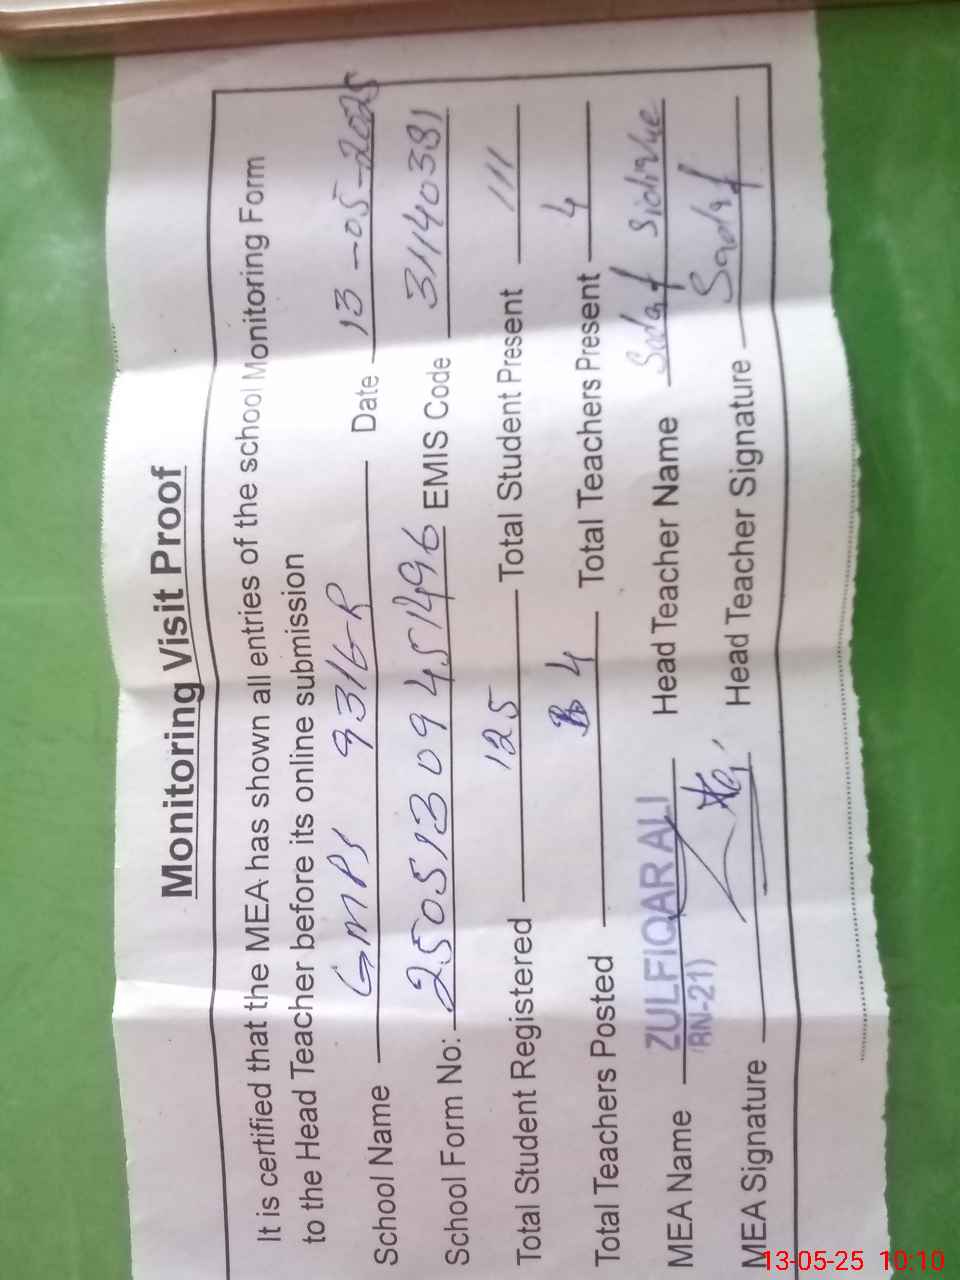 Monitoring Visit Proof
It is certified that the MEA has shown all entries of the school Monitoring Form
to the Head Teacher before its online submission
School Name GMPS 93/6-R Date 13-05-2025
School Form No: 25051309451496 EMIS Code 31140391
Total Student Registered 125 Total Student Present 111
Total Teachers Posted 4 Total Teachers Present 4
MEA Name ZULFIQAR ALI Head Teacher Name Sadaf
(BN-21)
MEA Signature Head Teacher Signature Sadaf
13-05-25 10:10